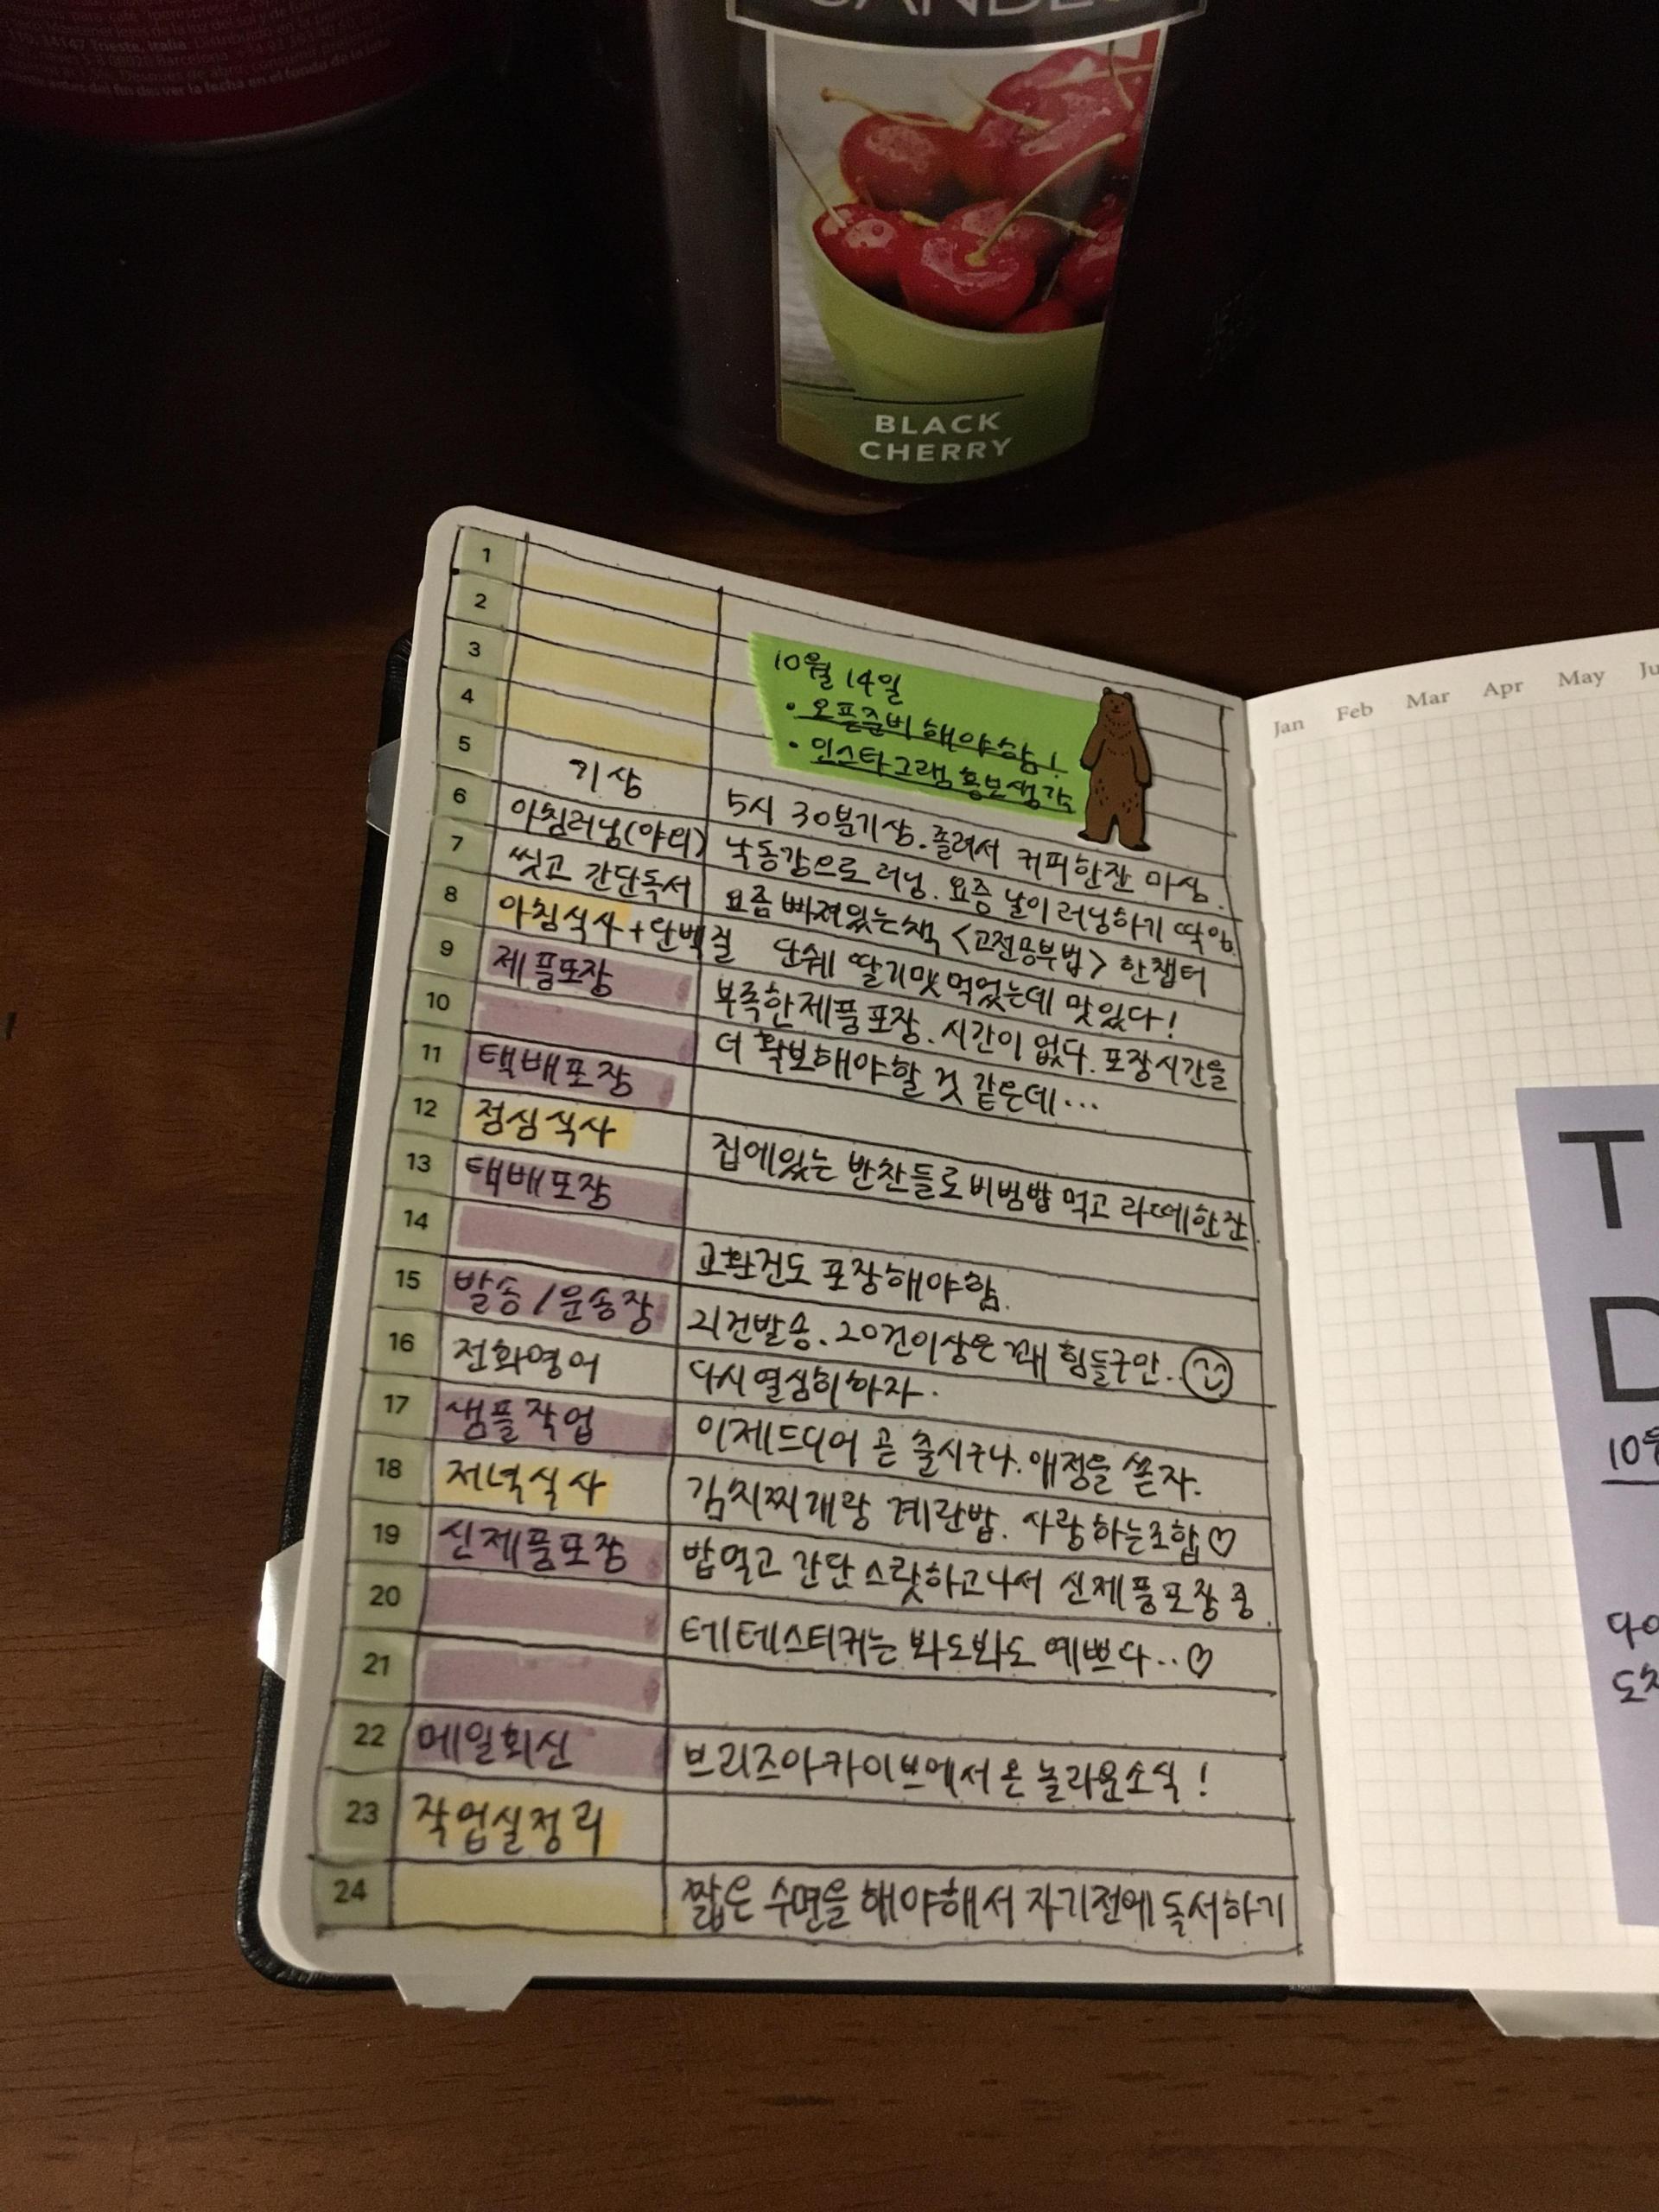 BLACK
CHERRY
1
2
3
4
5
10월 14일
· 오픈준비 해야함!
· 인스타그램 홍보생각
Jan Feb Mar Apr May Ju
기상
5시 30분기상. 졸려서 커피한잔 마심.
6 아침러닝(야외) 낙동강으로 러닝. 요즘 날이 러닝하기 딱임
7 씻고 간단독서 요즘 빠져있는책 <고전공부법> 한챕터
8 아침식사+단백질 단쉐 딸기맛 먹었는데 맛있다!
9 제품포장 부족한제품포장. 시간이 없다. 포장시간을
10 더 확보해야할 것 같은데...
11 택배포장
12 점심식사 집에있는 반찬들로비빔밥 먹고 라떼한잔.
13 택배포장
14 교환건도 포장해야함.
15 발송/운송장 21건발송. 20건이상은 꽤 힘들구만..
16 전화영어 다시열심히하자.
17 샘플작업 이제드디어 곧 출시구나. 애정을 쏟자.
18 저녁식사 김치찌개랑 계란밥. 사랑하는조합♡
19 신제품포장 밥먹고 간단스쾃하고나서 신제품포장 중.
20 테테스티커는 봐도봐도 예쁘다..♡
21
22 메일회신 브리즈아카이브에서 온 놀라운소식!
23 작업실정리
24 짧은 수면을 해야해서 자기전에 독서하기
T
D